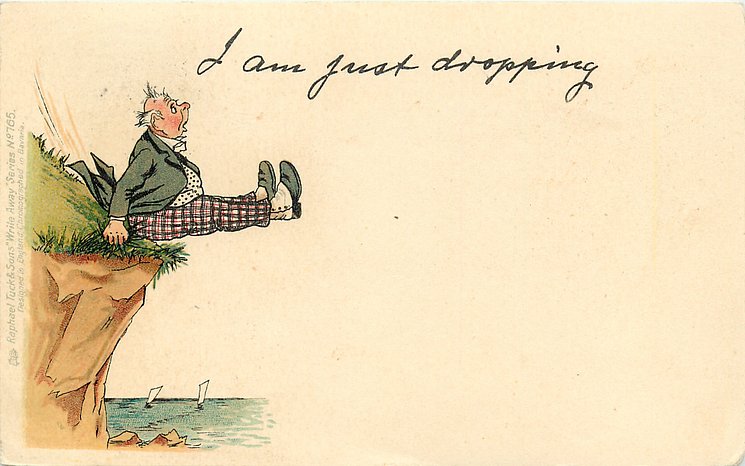 I am just dropping
Raphael Tuck & Sons' "Write Away" Series Nº 765.
Designed in England, Chromographed in Bavaria.